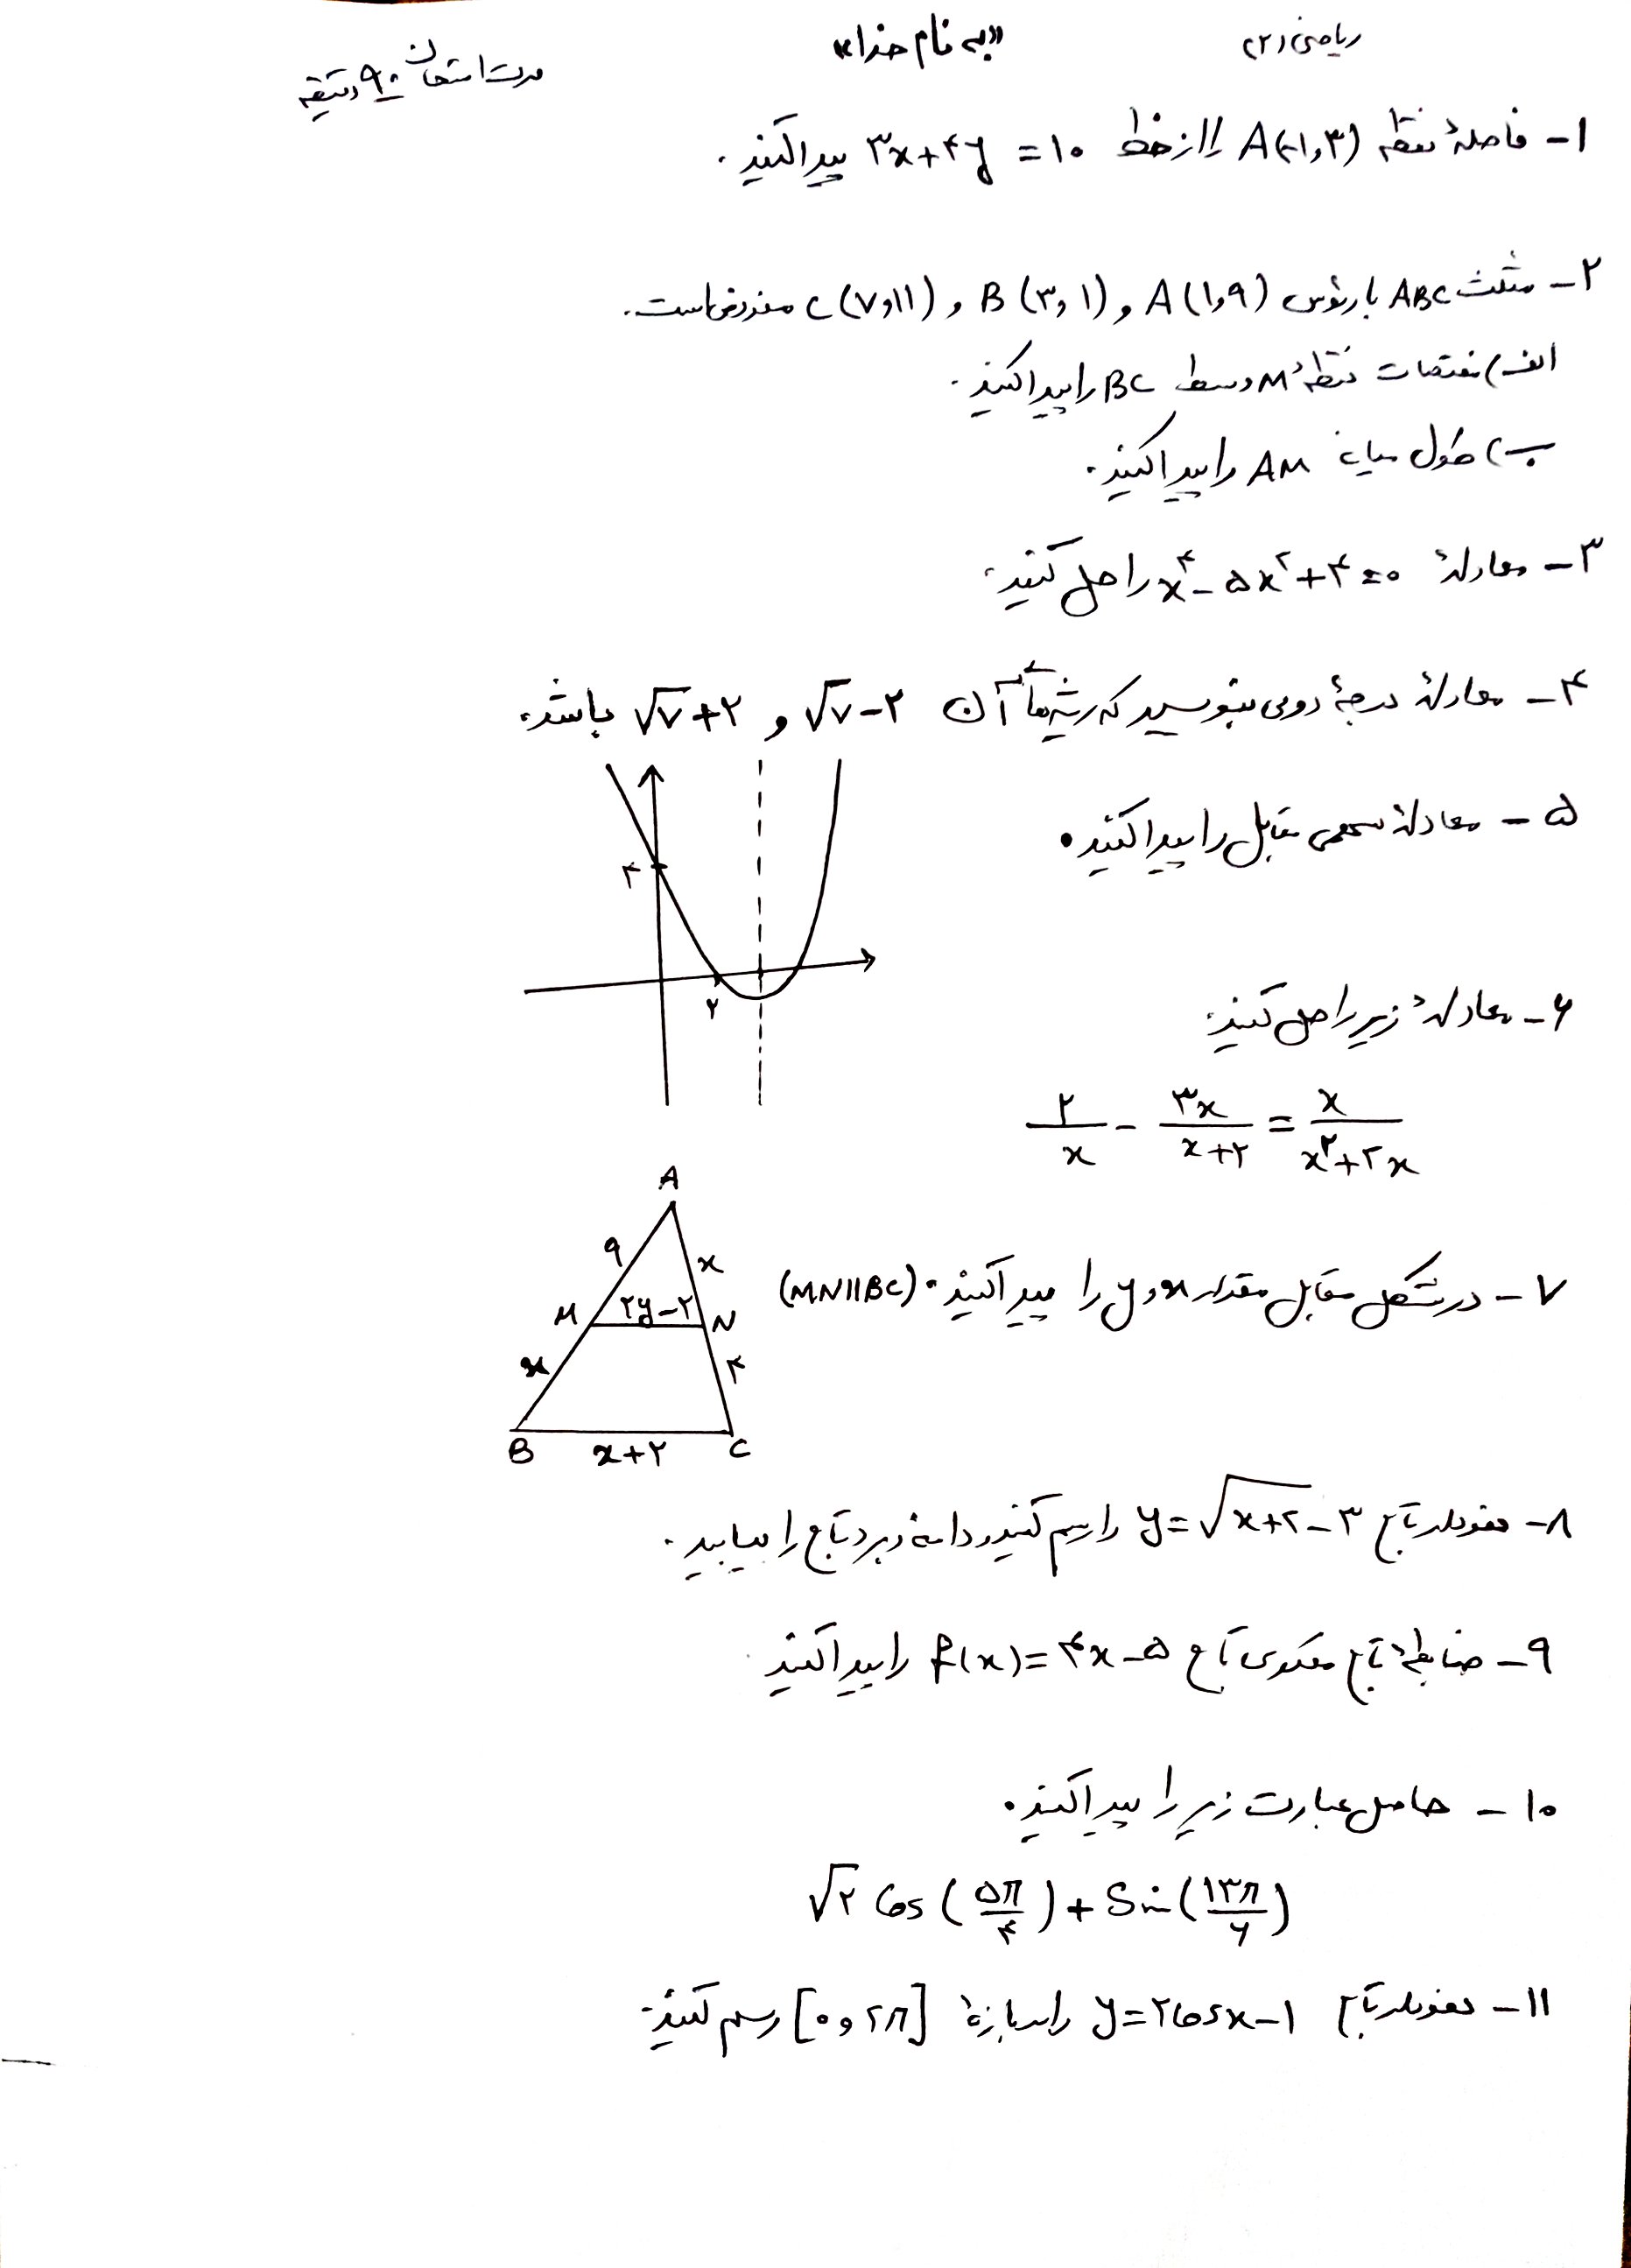 ریاضی (۲)
«به نام خدا»
مدت امتحان ۹۰ دقیقه
۱- فاصلهٔ نقطه A(-۱,۳) را از خط ۳x+۴y=۱۰ پیدا کنید.
۲- مثلث ABC با رئوس A(۱,۹) و B(۳,۱) و C(۷,۱۱) مفروض است.
الف) مختصات نقطهٔ M وسط BC را پیدا کنید.
ب) طول میانه AM را پیدا کنید.
۳- معادلهٔ x⁴-۵x²+۴=۰ را حل کنید.
۴- معادلهٔ درجهٔ دومی بنویسید که ریشه‌های آن √۷-۲ و √۷+۲ باشد.
۵- معادلهٔ سهمی مقابل را پیدا کنید.
۴
۲
۶- معادلهٔ زیر را حل کنید.
۲/x - ۳x/(x+۲) = x/(x²+۲x)
۷- در شکل مقابل مقدار x و y را پیدا کنید. (MN||BC)
A
۹ x
M ۲y-۲ N
x ۴
B x+۲ C
۸- نمودار تابع y=√(x+۲)-۳ را رسم کنید و دامنه و برد تابع را بیابید.
۹- ضابطهٔ تابع معکوس تابع f(x)=۴x-۵ را پیدا کنید
۱۰- حاصل عبارت زیر را پیدا کنید.
√۲ Cos(۵π/۴)+Sin(۱۳π/۶)
۱۱- نمودار تابع y=۲cosx-۱ را در بازهٔ [۰,۲π] رسم کنید.